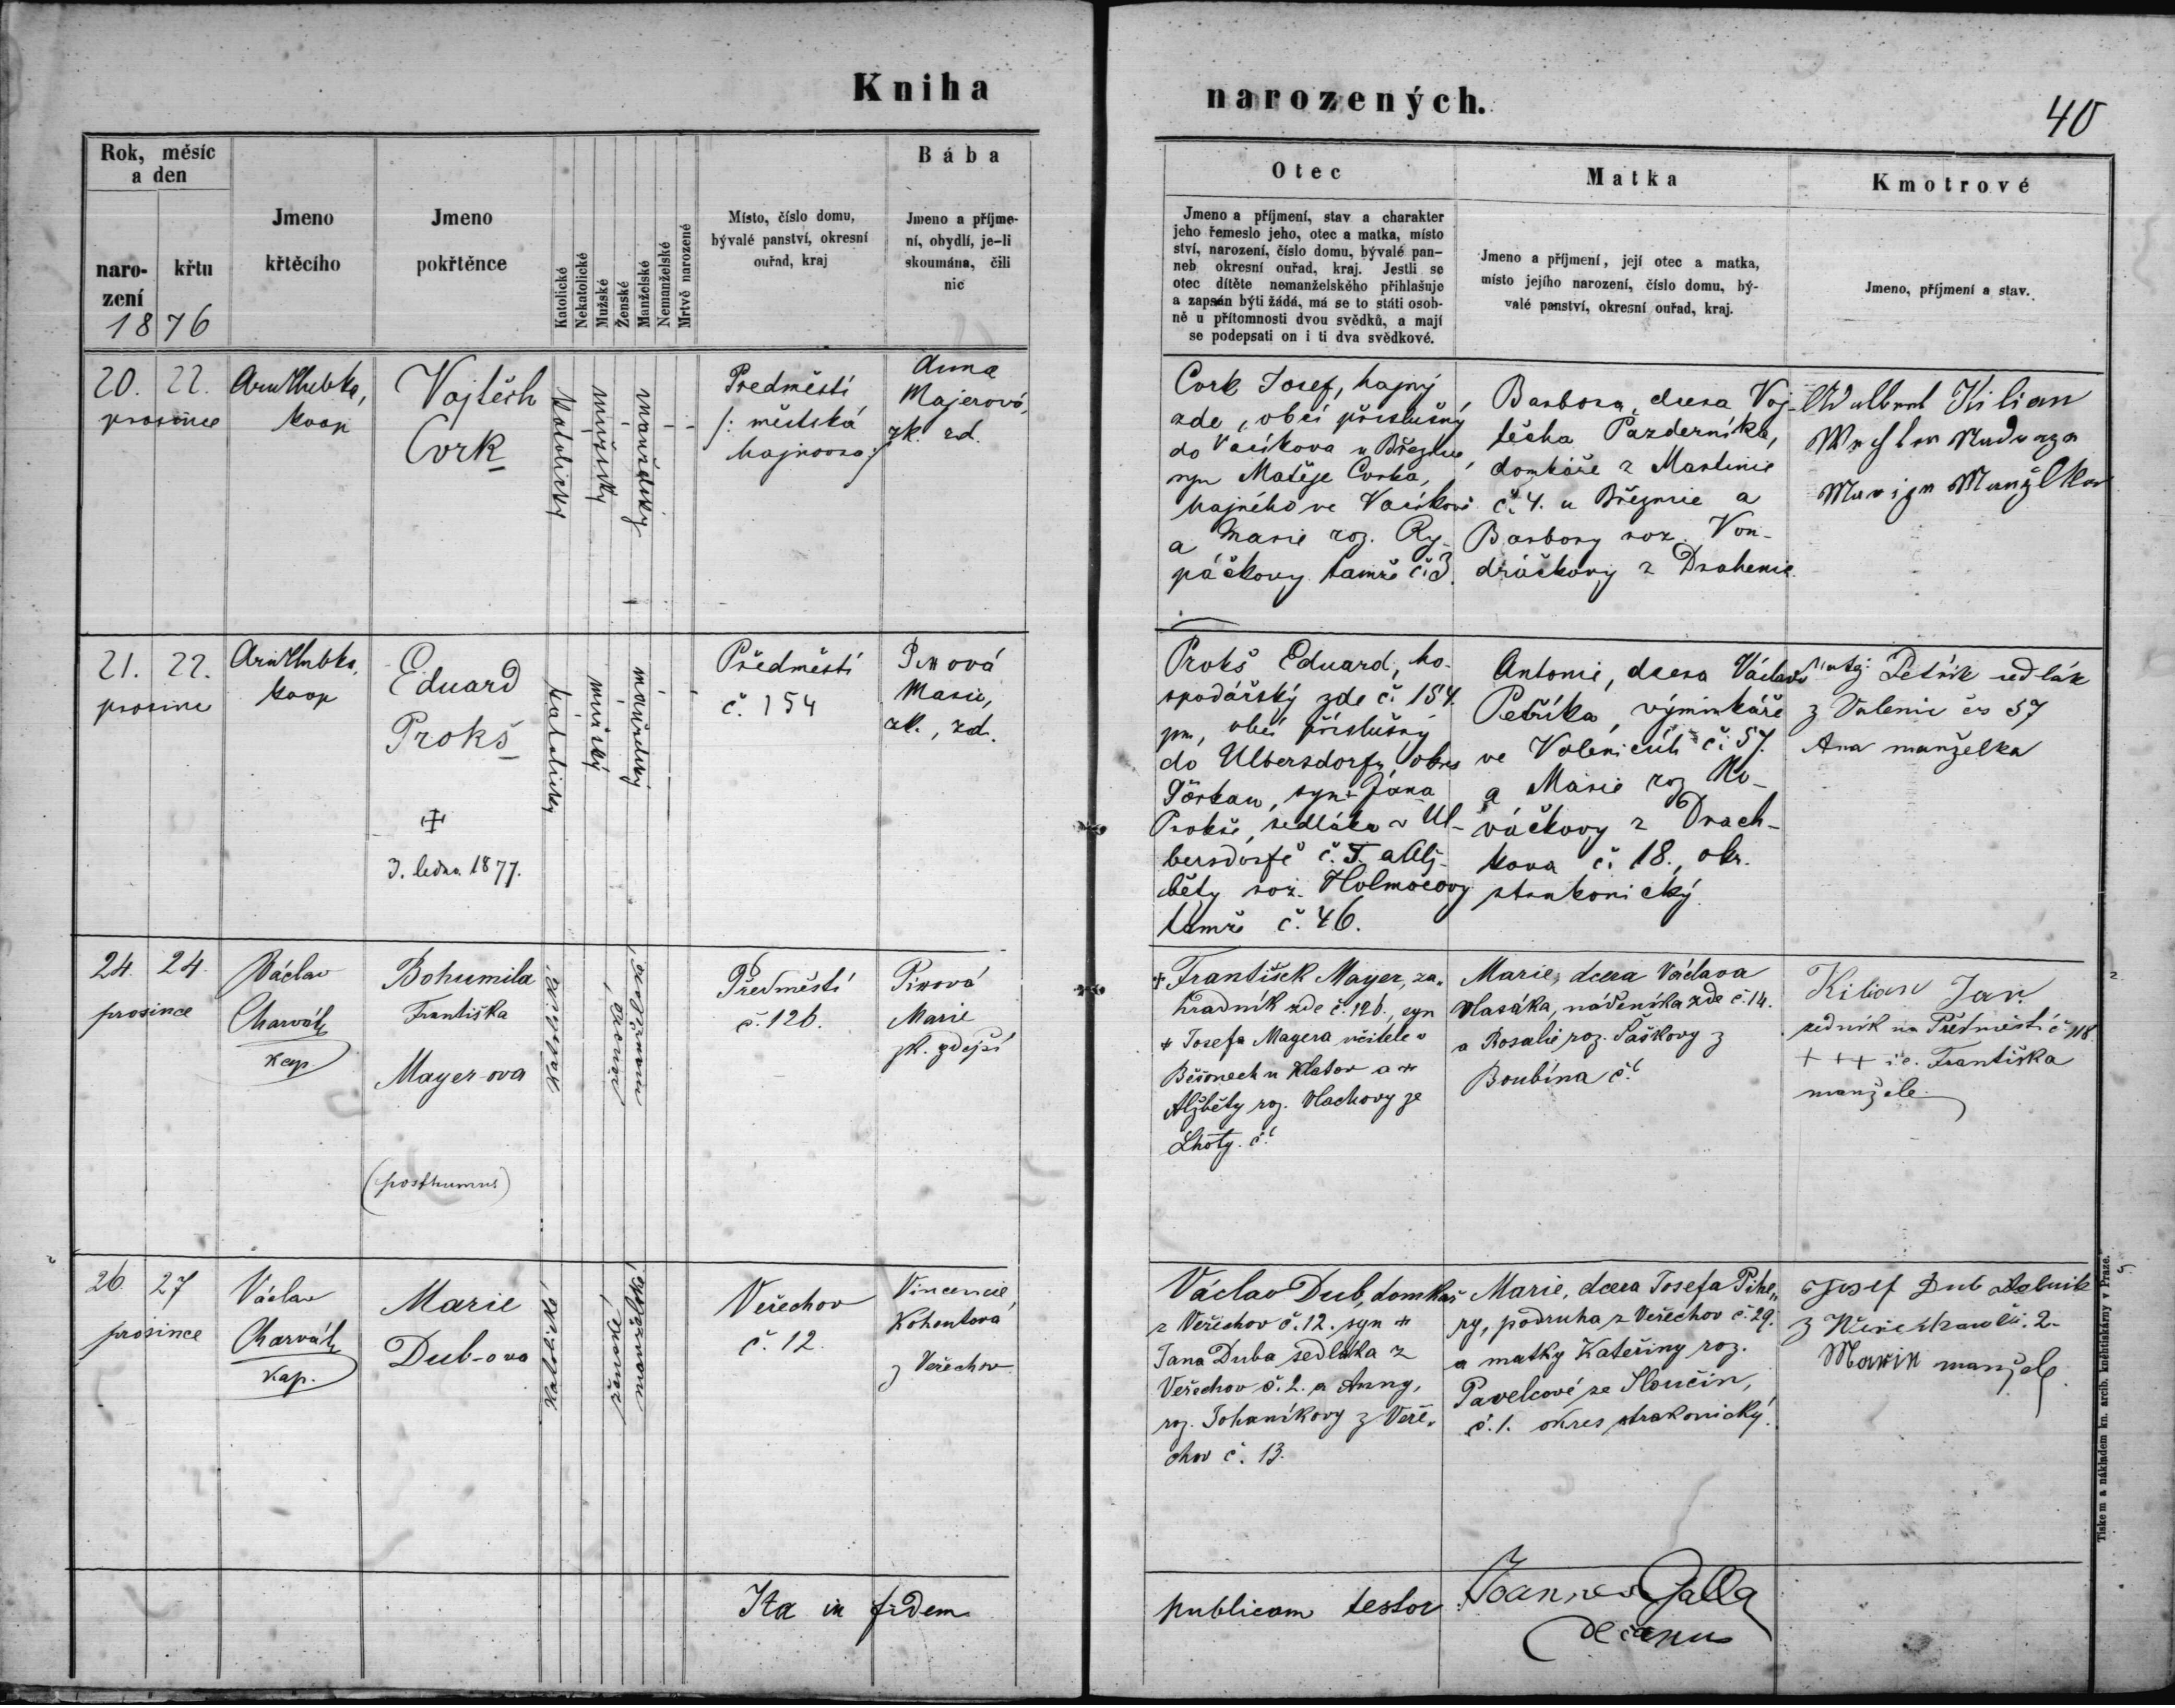 Kniha narozených.
40
Rok, měsíc
a den
naro-
zení
křtu
1876
Jmeno
křtěcího
Jmeno
pokřtěnce
Katolické
Nekatolické
Mužské
Ženské
Manželské
Nemanželské
Mrtvě narozené
Místo, číslo domu,
bývalé panství, okresní
ouřad, kraj
Bába
Jmeno a příjme-
ní, obydlí, je-li
skoumána, čili
nic
Otec
Jmeno a příjmení, stav a charakter
jeho řemeslo jeho, otec a matka, místo
ství, narození, číslo domu, bývalé pan-
neb okresní ouřad, kraj. Jestli se
otec dítěte nemanželského přihlašuje
a zapsán býti žádá, má se to státi osob-
ně u přítomnosti dvou svědků, a mají
se podepsati on i ti dva svědkové.
Matka
Jmeno a příjmení, její otec a matka,
místo jejího narození, číslo domu, bý-
valé panství, okresní ouřad, kraj.
Kmotrové
Jmeno, příjmení a stav.
20. 22.
prosince
koop
Vojtěch
Cvrk
katolický
mužský
manželský
Předměstí
/: městská
hajnovna :/
Anna
Majerová,
zk. zd.
Cvrk Josef, hajný
zde, obcí příslušný
do Vacíkova u Březnice,
syn Matěje Cvrka,
hajného ve Vacíkově
a Marie roz. Ry-
páčkovy tamže č. 3.
Barbora, dcera Voj-
těcha Pazderníka,
domkáře z Martinic
č. 4. u Březnice a
Barbory roz. Von-
dráčkovy z Drahenic.
Kilian
21. 22.
prosince
koop
Eduard
Prokš
3. ledna 1877.
katolický
mužský
manželský
Předměstí
č. 154
Pixová
Marie,
zk., zd.
Prokš Eduard, ho-
spodářský zde č. 154.
obcí příslušný
do Ulbersdorfu, okres
Görkau, syn Jana
Prokše, sedláka v Ul-
bersdorfě
běty roz. Holmočovy
tamže č. 46.
Antonie, dcera Václava
Petříka, výminkáře
ve Volenicích č. 57.
a Marie roz. No-
váčkovy z Drach-
kova č. 18., okr.
strakonický.
Petřík sedlák
z Volenic čs 57
Ana manželka
24. 24.
prosince
Václav
Charvát
kap.
Bohumila
Františka
Mayer-ova
(posthumus)
katolické
ženské
manželské
Předměstí
č. 126.
Pixová
Marie
zk. zdejší
+ František Mayer, za„
hradník zde č. 126., syn
+ Josefa Mayera učitele v
u Klatov a +
Alžběty roz. Vlachovy ze
Lhoty. č.
Marie, dcera Václava
Vlasáka, nádeníka zde č. 14.
a Rosalie roz. Paškovy z
Boubína č.
Kilian Jan
zedník na Předměstí č. 118.
+ + + i.e. Františka
manžele.
26. 27
prosince
Václav
Charvát
kap.
Marie
Dub-ova
katolické
ženské
manželské
Veřechov
č. 12.
Vincencie
Kohoutová
z Veřechov
Václav Dub, domkař
z Veřechov č. 12. syn +
Jana Duba sedláka z
Veřechov č. 2. a Anny,
roz. Johaníkovy z Veře„
chov č. 13.
Marie, dcera Josefa Pihe„
ry, podruha z Veřechov č. 29.
a matky Kateřiny roz.
Pavelcové ze Sloučin,
č. 1. okres strakonický.
Josef Dub
z
Marie manžele
Ita in fidem publicam testor Joannes Galla
decanus
Tiskem a nákladem kn. arcib. knihtiskárny v Praze.